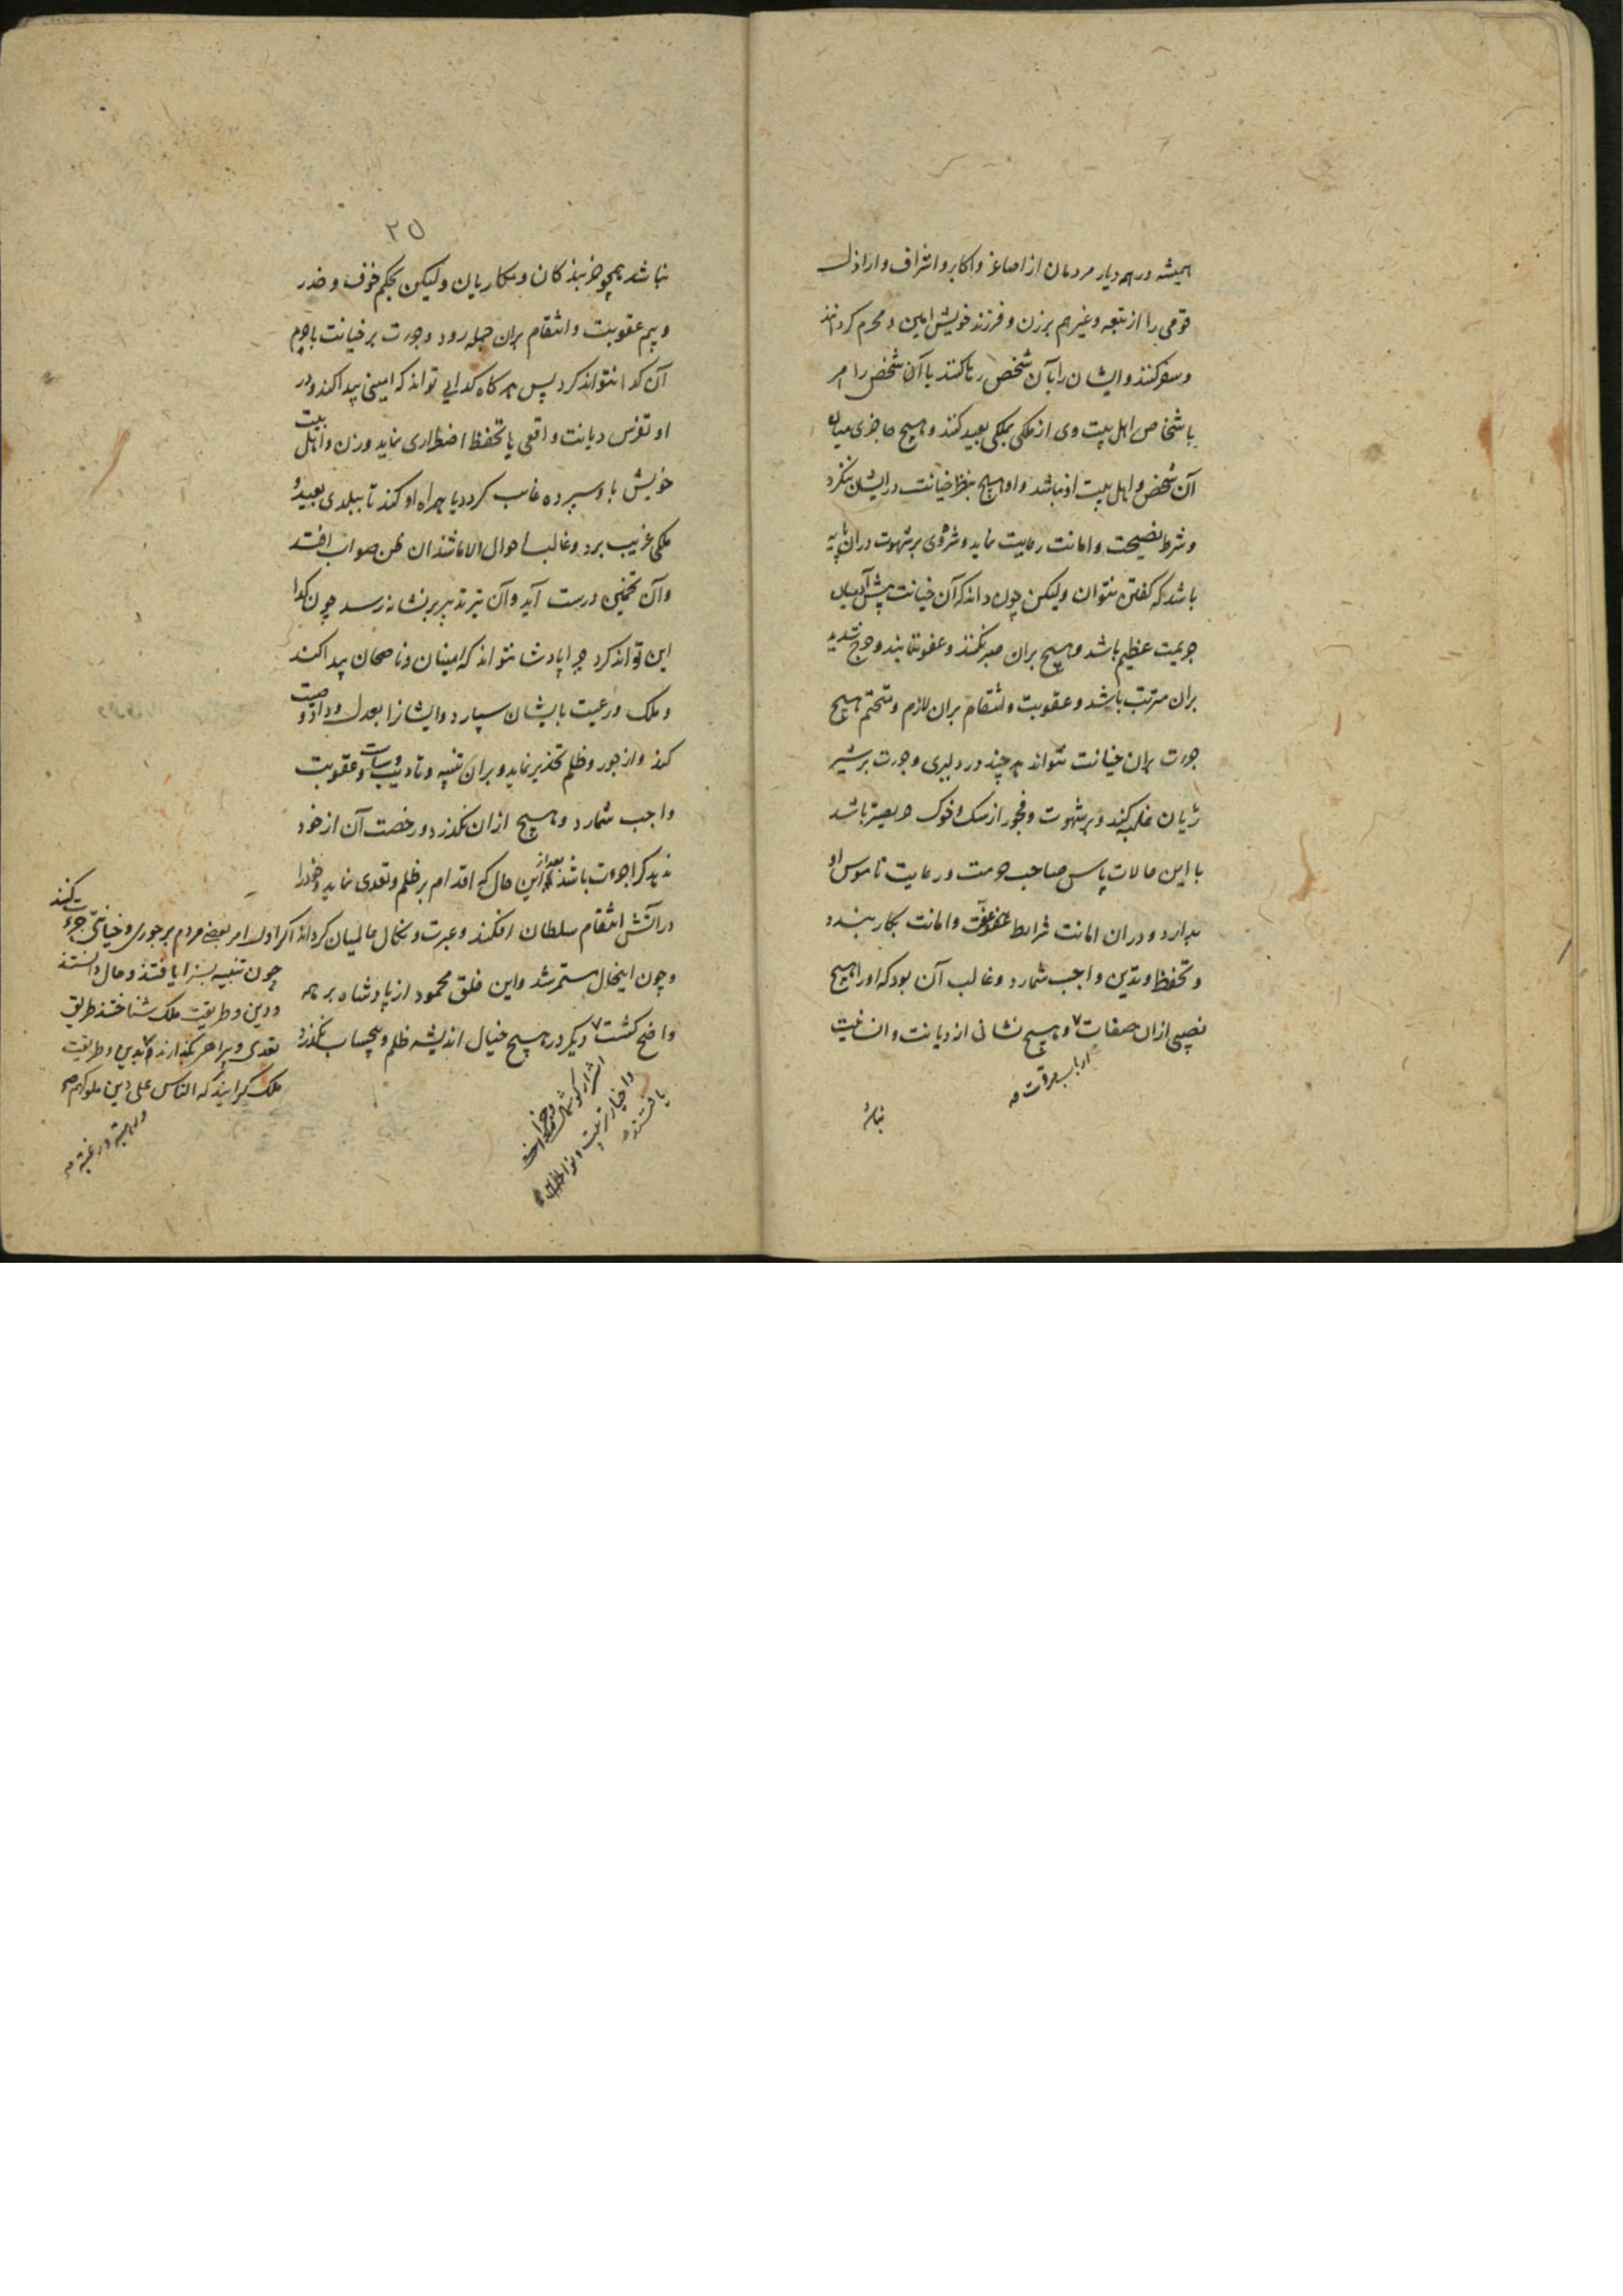 همیشه در هر دیار مردمان از اصاغر و اکابر و اشراف و اراذل
قومی را از تبعه و غیرهم بر زن و فرزند خویش امین و محرم کردانند
و سفر کنند و ایشان را بآن شخص رها کنند یا آن شخص را امر
باشخاص اهل بیت وی از ملکی بملکی بعید کنند و هیچ حاجزی میان
آن شخص و اهل بیت او نباشد و او هیچ بنظر خیانت در ایشان ننگرد
و شرط نصیحت و امانت رعایت نماید و شروی بر شهوت دران پایه
باشد که گفتن نتوان ولیکن چون داند که آن خیانت پیش آدمیان
جریمت عظیم باشد و هیچ بران صبر نکنند و عفو ننمایند و حرج شدید
بران مترتب باشد و عقوبت و انتقام بران لازم و متحتم هیچ
جرءت بران خیانت نتواند هر چند در دلیری و جرءت بر شیر
ژیان غلبه کند و بر شهوت و فجور از سک و خوک حریصتر باشد
با این حالات پاس صاحب حرمت و رعایت ناموس او
بدارد و دران امانت شرایط عفت و امانت بکار بندد
و تحفظ و تدین واجب شمارد و غالب آن بود که او را هیچ
نصیبی ازان صفات و هیچ نشانی از دیانت و انسانیت
ارباب مروت صه
نباشد
۲۵
نباشد همچو خربندکان و مکاریان ولیکن بحکم خوف و حذر
و بیم عقوبت و انتقام بران جمله رود و جرءت بر خیانت با حرم
آن کدا نتواند کرد پس هر کاه کدایی تواند که امینی پیدا کند و در
او تفرس دیانت واقعی یا تحفظ اضطراری نماید و زن و اهل بیت
خویش باو سپرده غایب کردد یا همراه او کند تا ببلدی بعید و
ملکی غریب برد و غالب احوال الا ماشذ ان ظن صواب افتد
وآن تخمین درست آید وآن تیر تدبیر بر نشانه رسد چون کدا
این تواند کرد چرا پادشا نتواند که امینان و ناصحان پیدا کند
و ملک و رعیت بایشان سپارد و ایشانرا بعدل و داد وصیت
کند و از جور و ظلم تحذیر نماید و بران تنبیه و تادیب و سیاست و عقوبت
واجب شمارد و هیچ ازان نکذرد و رخصت آن از خود
ندهد کرا جرءت باشد بعد از این حال که اقدام بر ظلم و تعدی نماید و خود را
در آتش انتقام سلطان افکند و عبرت و نکال عالمیان کرداند
و چون اینحال مستمر شد و این خلق محمود از پادشاه بر همه
واضح کشت دیکر در هیچ خیال اندیشه ظلم و بیحساب نکذرد
اشرار کوشمال
و اخیار تربیت و نوازش
یافتند
اکر اول امر بعضی مردم بر جوری و خیانتی جرءت کنند
چون تنبیه بسزا یافتند و حال دانستند
و دین و طریقت ملک شناختند طریق
تعدی و بیراهی بکذارند و بدین و طریقت
ملک کرایند که الناس علی دین ملوکهم صح